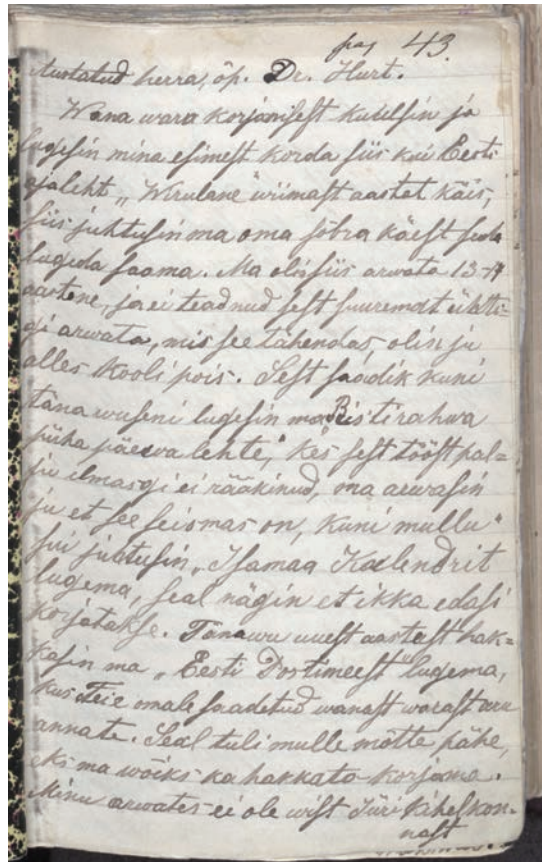 pag 43.
Austatud herra, õp. Dr. Hurt.
Wana wara korjamisest kuulsin ja
lugesin mina esimest korda siis kui Eesti
ajaleht „Wirulane" wiimast aastat käis,
siis juhtusin ma oma sõbra käest seda
lugeda saama. Ma olin siis arwata 13-14
aastane, ja ei teadnud sest suuremat ühtte-
gi arwata, mis see tähendas, olin ju
alles kooli pois. Sest saadik kuni
täna wuseni lugesin ma „Ristirahwa
püha päewa lehte," kes sest tööst pal-
ju ilmasgi ei rääkinud, ma arwasin
ju et see seismas on, kuni mullu
sui juhtusin „Isamaa Kalendrit"
lugema, seal nägin et ikka edasi
korjatakse. Tänawu uuest aastast hak-
kasin ma „Eesti Postimeest" lugema,
kus Teie omale saadetud wanast warast aru
annate. Seal tuli mulle mõtte pähe,
eks ma wõiks ka hakkata korjama.
Minu arwates ei ole wist Jüri kihelkon-
nast